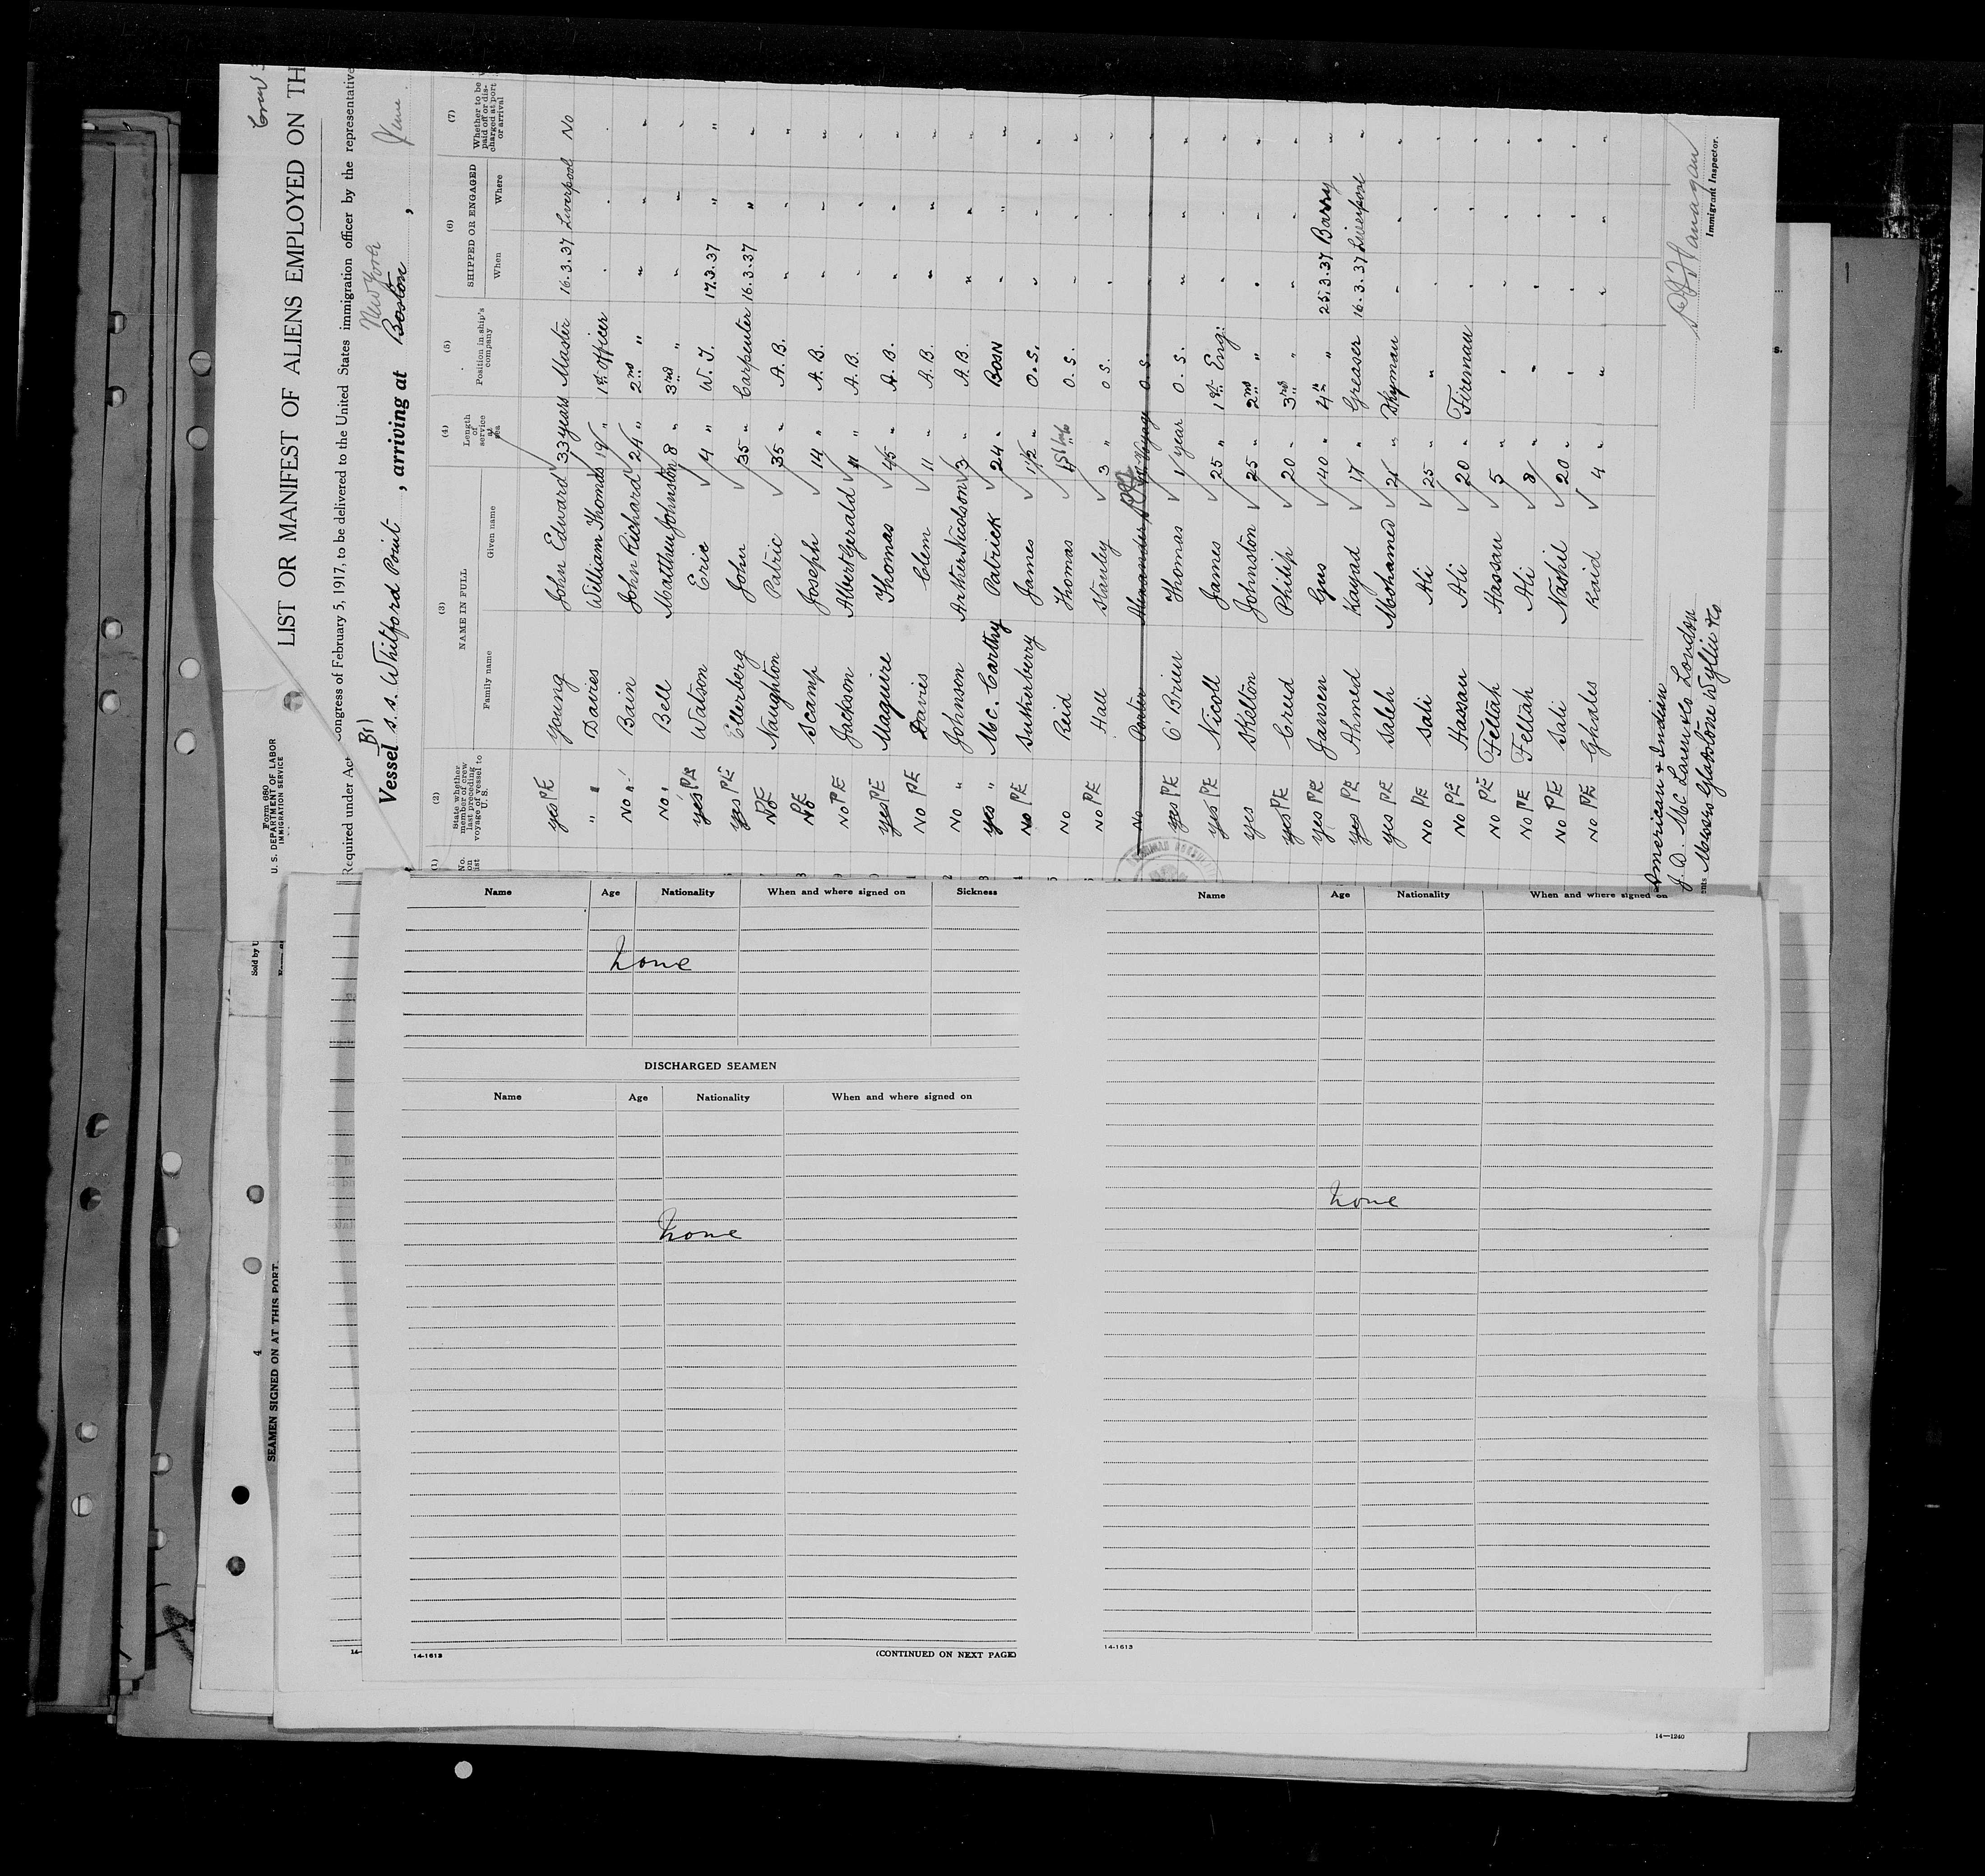 Form 680
U. S. DEPARTMENT OF LABOR
IMMIGRATION SERVICE
Crew
LIST OR MANIFEST OF ALIENS EMPLOYED ON TH
Required under Act Congress of February 5, 1917, to be delivered to the United States immigration officer by the representative
New York
B1
Vessel s.s. Whitford Point , arriving at Boston ,
(1) (2) (3) (4) (5) (6) (7)
No. on list State whether member of crew last preceding voyage of vessel to U. S. NAME IN FULL Length of service at sea Position in ship's company SHIPPED OR ENGAGED Whether to be paid off or discharged at port or arrival
Family name Given name When Where
yes PE Young John Edward 33 years Master 16.3.37 Liverpool No
" " Davies William Thomas 19 " 1st officer " " "
No " Bain John Richard 24 " 2nd " " " "
No " Bell Matthew Johnston 8 " 3rd " " " "
yes PE Watson Eric 4 " W. T. 17.3.37 " "
yes PE Ellerberg John 35 " Carpenter 16.3.37 " "
No PE Naughton Patric 35 " A. B. " " "
No PE Scamp Joseph 14 " A. B. " " "
No PE Jackson Albert Gerald 11 " A. B. " " "
yes PE Maguire Thomas 45 " A. B. " " "
No PE Davis Clem 11 " A. B. " " "
No " Johnson Arther Nicolson 3 " A. B. " " "
yes " Mc. Carthy Patrick 24 " BOSN " " "
No PE Sutherberry James 1½ " O. S. " " "
No Reid Thomas O. S. " " "
No PE Hall Stanley 3 " O S. " " "
No Porter Alexander O. S.
yes PE O'Brien Thomas 1 year O. S. " " "
yes PE Nicoll James 25 " 1st Eng: " " "
yes Skelton Johnston 25 " 2nd " " " "
yes PE Creed Philip 20 " 3rd " " " "
yes PE Jansen Gus 40 " 4th " 25.3.37 Barry "
yes PE Ahmed Kayad 17 " Greaser 16.3.37 Liverpool "
yes PE Saleh Mohamed 21 " " " "
No PE Sali Ali 25 " " " " "
No PE Hassan Ali 20 " Fireman " " "
No PE Fellah Hassan 5 " " " " "
No PE Fellah Ali 8 " " " " "
No PE Sali Nashil 20 " " " " "
No PE Ghales Kaid 4 " " " " "
American & Indian
J. D. Mc Laren & Co London
ents Messrs Gladstone Wyllie & Co
Immigrant Inspector.
Sold by U
4
SEAMEN SIGNED ON AT THIS PORT.
Name Age Nationality When and where signed on Sickness
none
DISCHARGED SEAMEN
Name Age Nationality When and where signed on
none
14-1613
(CONTINUED ON NEXT PAGE)
Name Age Nationality When and where signed on
none
14-1613
14—1240